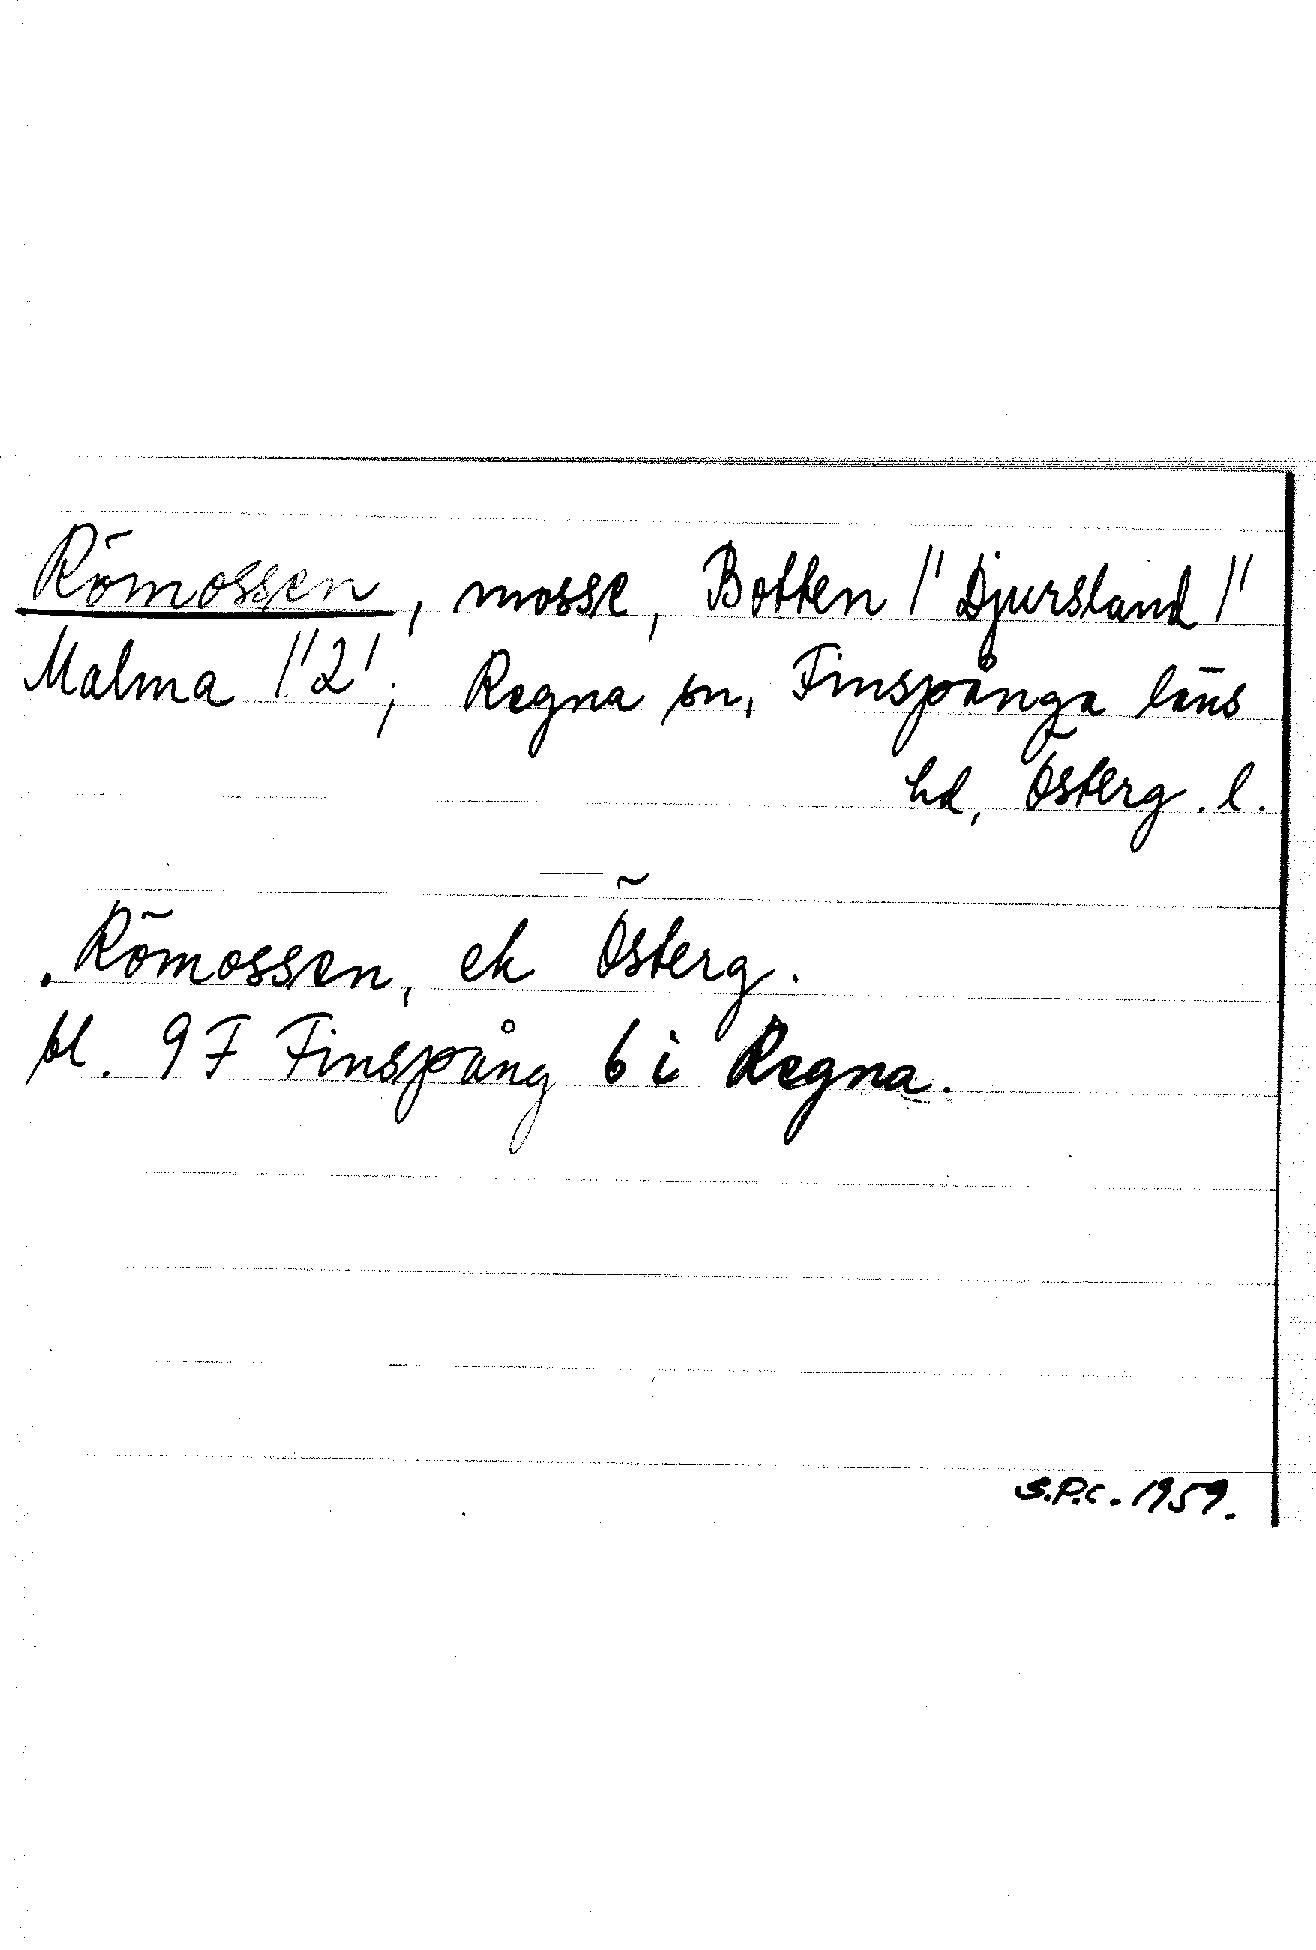 Römossen, mosse, Botten 1/1 Djursland 1/1
Malma 1/2; Regna sn, Finspånga läns
hd, Österg. l.
Römossen, ek Österg.
bl. 9F Finspång 6 i Regna.
S.P.C. 1959.